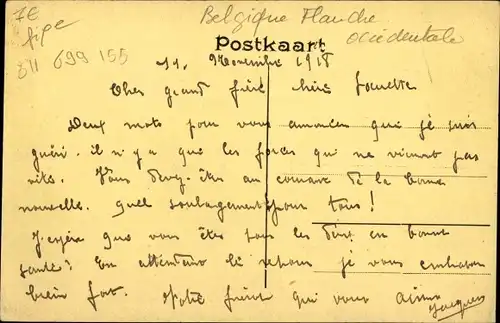 7E
Belgique Flandre
occidentale
fipe
811 699 155
Postkaart
11 Novembre 1918
Cher grand frère chère
Deux mots pour vous annoncer que je suis
guéri. il n'y a que les forces qui ne viennent pas
vite. Vous devez être au courant de la bonne
nouvelle. quel soulagement pour tous!
J'espère que vous êtes tous les deux en bonne
santé? En attendant de repons je vous embrasse
bien fort. Votre frérot qui vous aime
Jacques